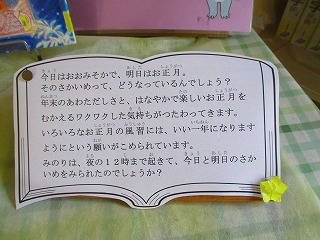 今日はおおみそかで、明日はお正月。
そのさかいめって、どうなっているんでしょう？
年末のあわただしさと、はなやかで楽しいお正月を
むかえるワクワクした気持ちがつたわってきます。
いろいろなお正月の風習には、いい一年になります
ようにという願いがこめられています。
みのりは、夜の１２時まで起きて、今日と明日のさか
いめをみられたのでしょうか？